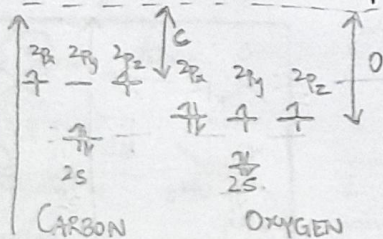 C
O
2Px 2Py 2Pz
2Px 2Py 2Pz
2S
2S
CARBON OXYGEN